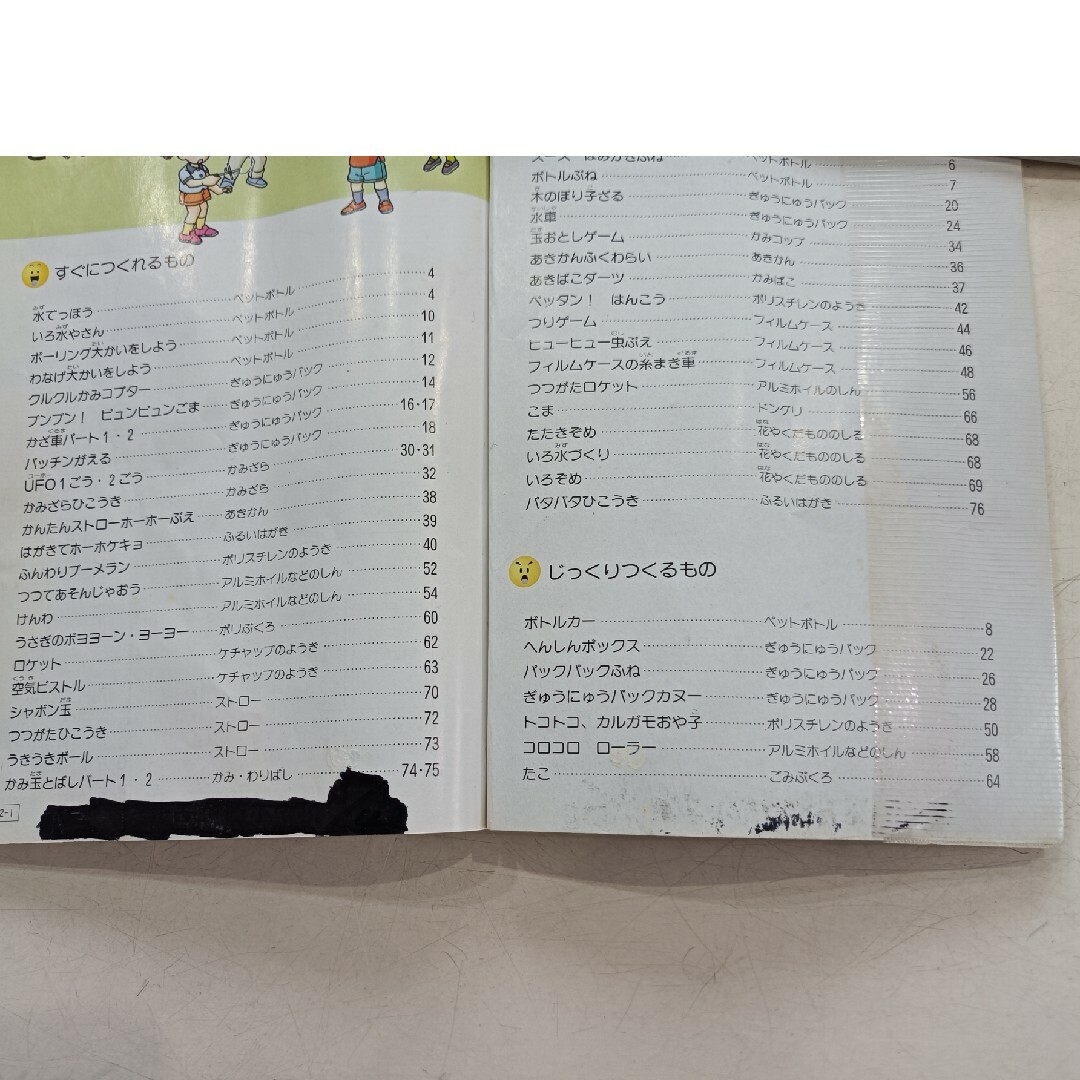 すぐにつくれるもの
水てっぽう ペットボトル 4
いろ水やさん ペットボトル 4
ボーリング大かいをしよう ペットボトル 10
わなげ大かいをしよう ペットボトル 11
クルクルかみコプター ぎゅうにゅうパック 12
ブンブン! ビュンビュンごま ぎゅうにゅうパック 14
かざ車パート1・2 ぎゅうにゅうパック 16・17
パッチンがえる ぎゅうにゅうパック 18
UFO1ごう・2ごう かみざら 30・31
かみざらひこうき かみざら 32
かんたんストローホーホーぶえ あきかん 38
はがきでホーホケキョ ふるいはがき 39
ふんわりブーメラン ポリスチレンのようき 40
つつであそんじゃおう アルミホイルなどのしん 52
けんわ アルミホイルなどのしん 54
うさぎのボヨヨーン・ヨーヨー ポリぶくろ 60
ロケット ケチャップのようき 62
空気ピストル ケチャップのようき 63
シャボン玉 ストロー 70
つつがたひこうき ストロー 72
うきうきボール ストロー 73
かみ玉とばしパート1・2 かみ・わりばし 74・75
2-1
ペットボトル 6
ボトルぶね ペットボトル 7
木のぼり子ざる ぎゅうにゅうパック 20
水車 ぎゅうにゅうパック 24
玉おとしゲーム かみコップ 34
あきかんふくわらい あきかん 36
あきばこダーツ かみばこ 37
ペッタン! はんこう ポリスチレンのようき 42
つりゲーム フィルムケース 44
ヒューヒュー虫ぶえ フィルムケース 46
フィルムケースの糸まき車 フィルムケース 48
つつがたロケット アルミホイルのしん 56
こま ドングリ 66
たたきぞめ 花やくだもののしる 68
いろ水づくり 花やくだもののしる 68
いろぞめ 花やくだもののしる 69
パタパタひこうき ふるいはがき 76
じっくりつくるもの
ボトルカー ペットボトル 8
へんしんボックス ぎゅうにゅうパック 22
パックパックふね ぎゅうにゅうパック 26
ぎゅうにゅうパックカヌー ぎゅうにゅうパック 28
トコトコ、カルガモおや子 ポリスチレンのようき 50
コロコロ ローラー アルミホイルなどのしん 58
たこ ごみぶくろ 64